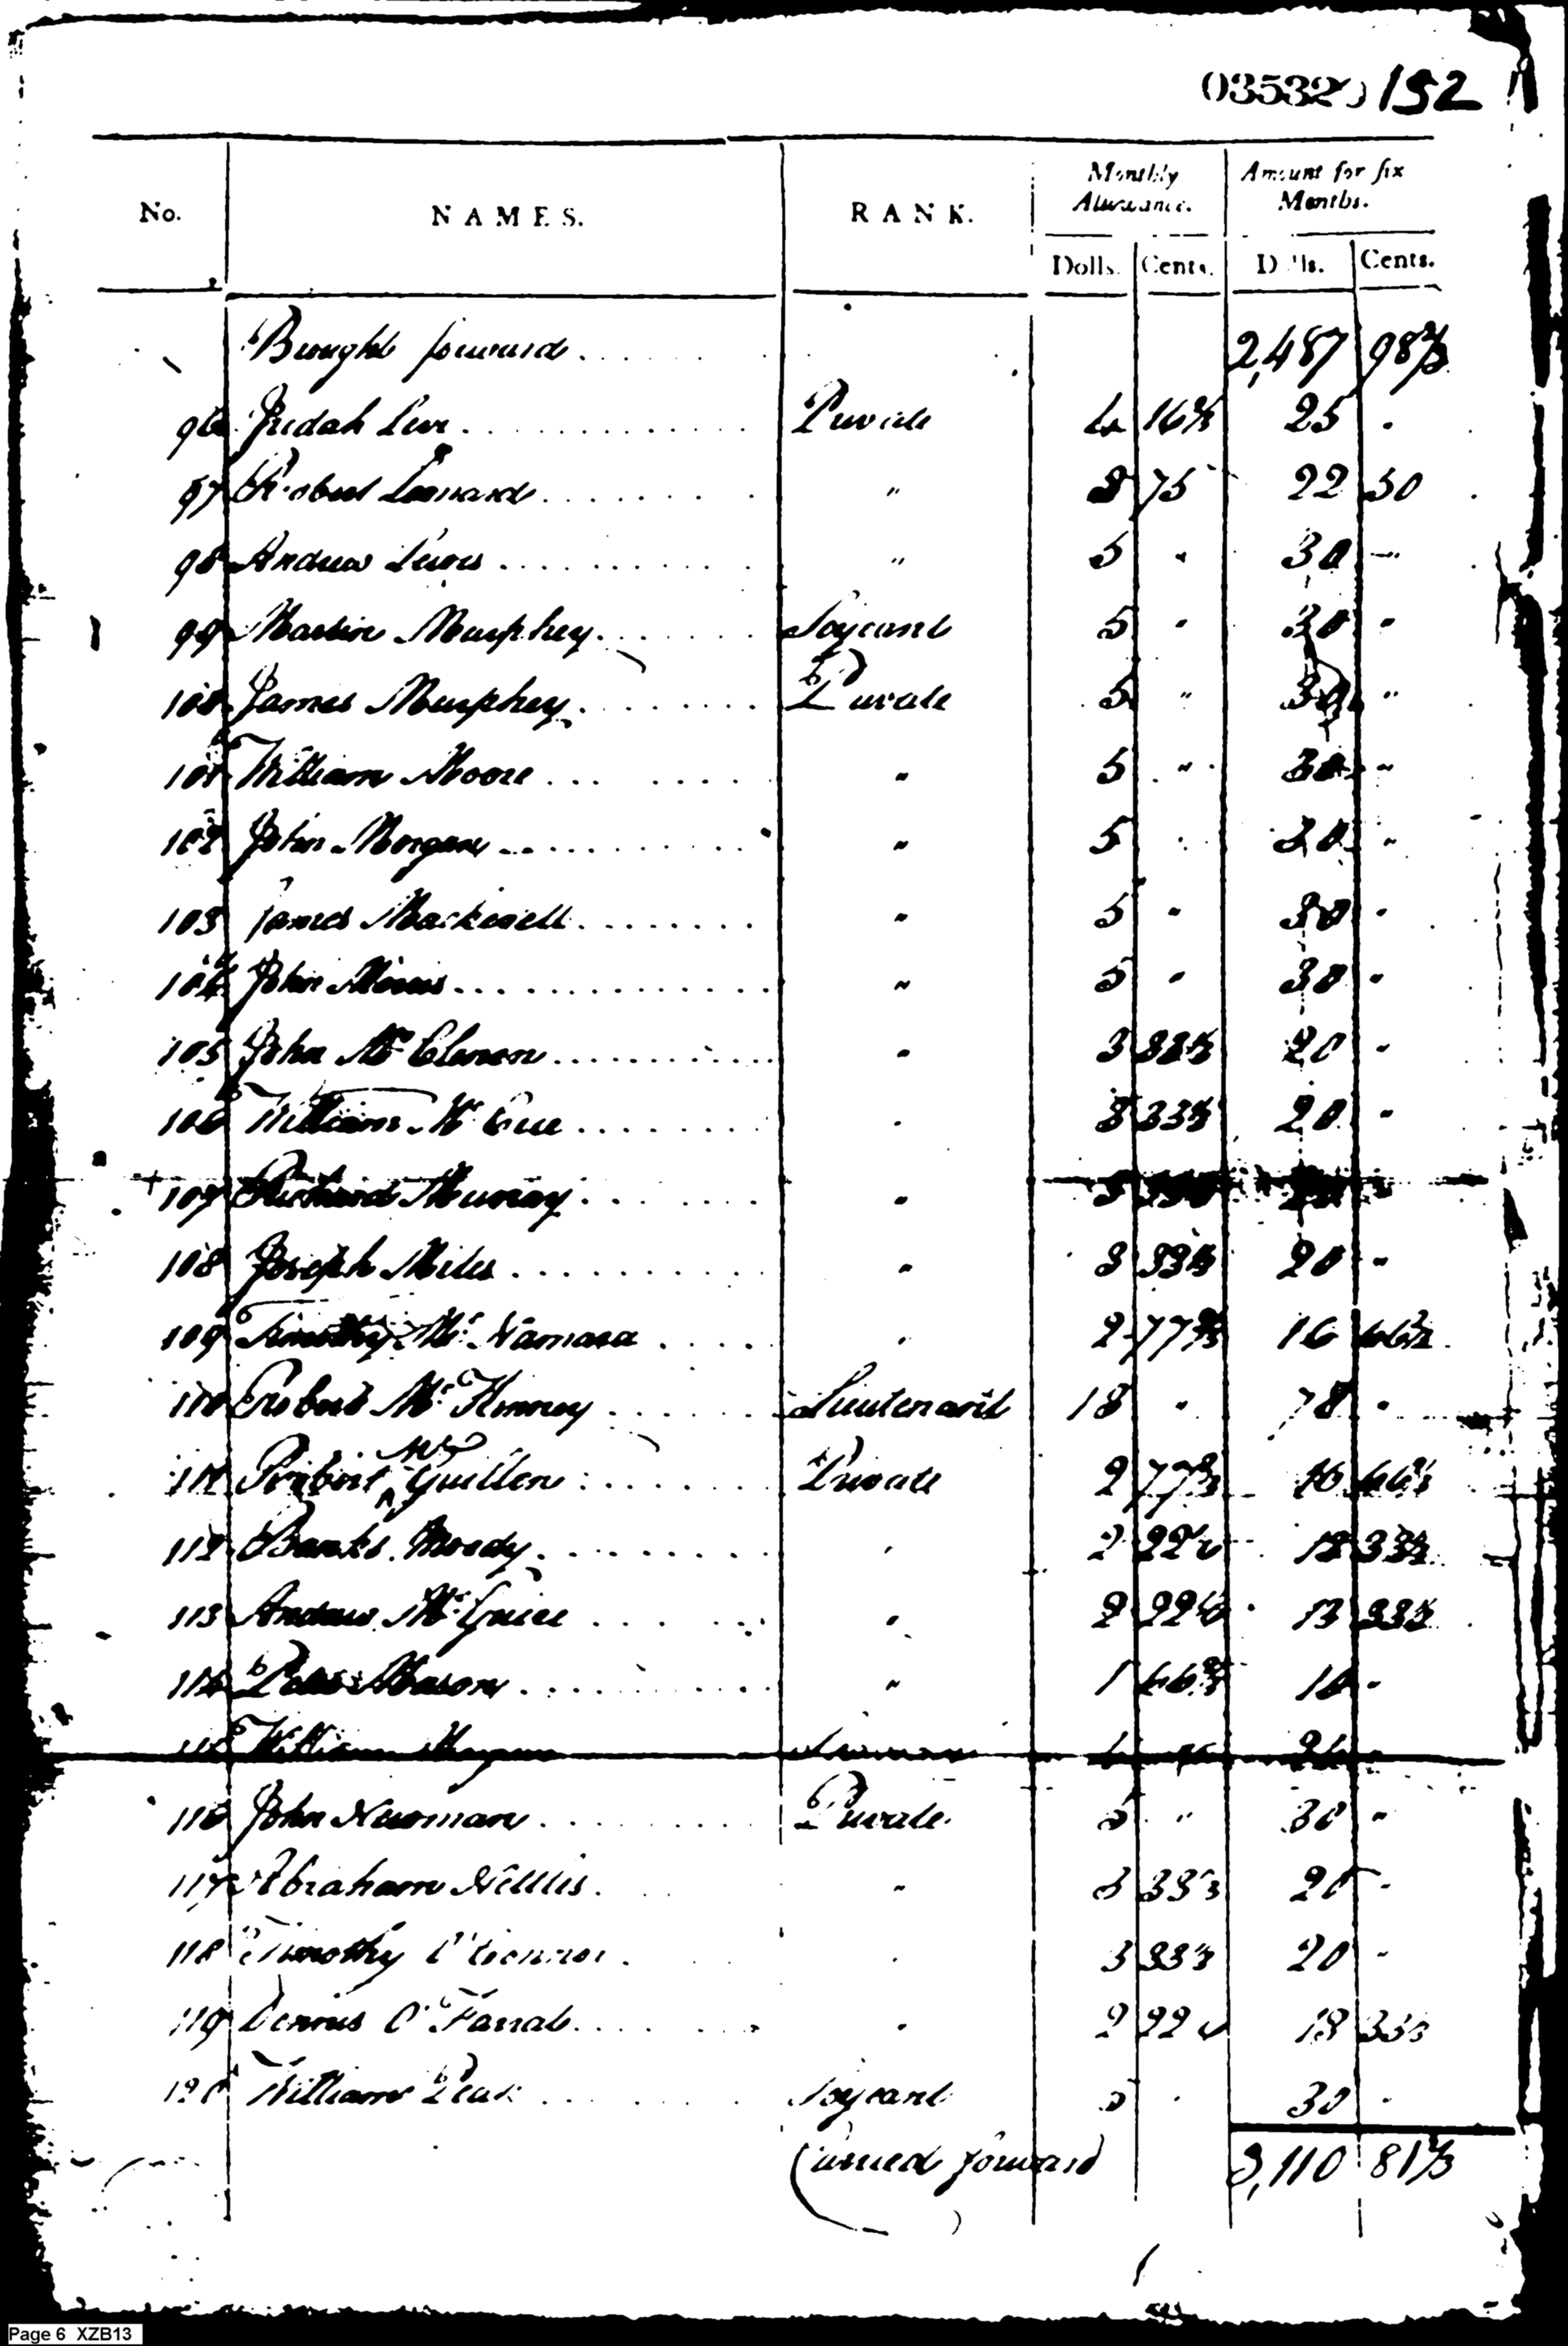 035320 152
No. NAMES. RANK. Monthly Allowance. Amount for six Months.
Dolls. Cents. Dolls. Cents.
Brought forward 2,487 98 2/3
96 Judah Levi Private 4 16 2/3 25 "
97 Robert Leonard " 3 75 22 50
98 Andrew Lewis " 5 " 30 "
99 Martin Murphey Serjeant 5 " 30 "
100 James Murphey Private 5 " 30 "
101 William Moore " 5 " 30 "
102 John Morgan " 5 " 30 "
103 James Mackerell " 5 " 30 "
104 John Morris " 5 " 30 "
105 John McClenon " 3 33 1/3 20 "
106 William McCue " 3 33 1/3 20 "
107 Richard Murray " 3 20
108 Joseph Miles " 3 33 1/3 20 "
109 Timothy McNamara " 2 77 2/3 16 66 2/3
110 Robert McKinney Lieutenant 13 " 78 "
111 Robert Mc Guillen Private 2 77 2/3 16 66 2/3
112 Banks Moody " 2 22 13 33 1/3
113 Andrew McGuire " 2 22 13 33 1/3
114 Peter Mason " 1 66 2/3 10 "
115 William
116 John Newman Private 5 " 30 "
117 Abraham Nettles " 3 33 1/3 20 "
118 Timothy O'Connor " 3 33 1/3 20 "
119 Dennis O'Farral " 2 22 13 33 1/3
120 William Peak Serjeant 5 " 30 "
Carried forward 3,110 81 1/3
Page 6 XZB13